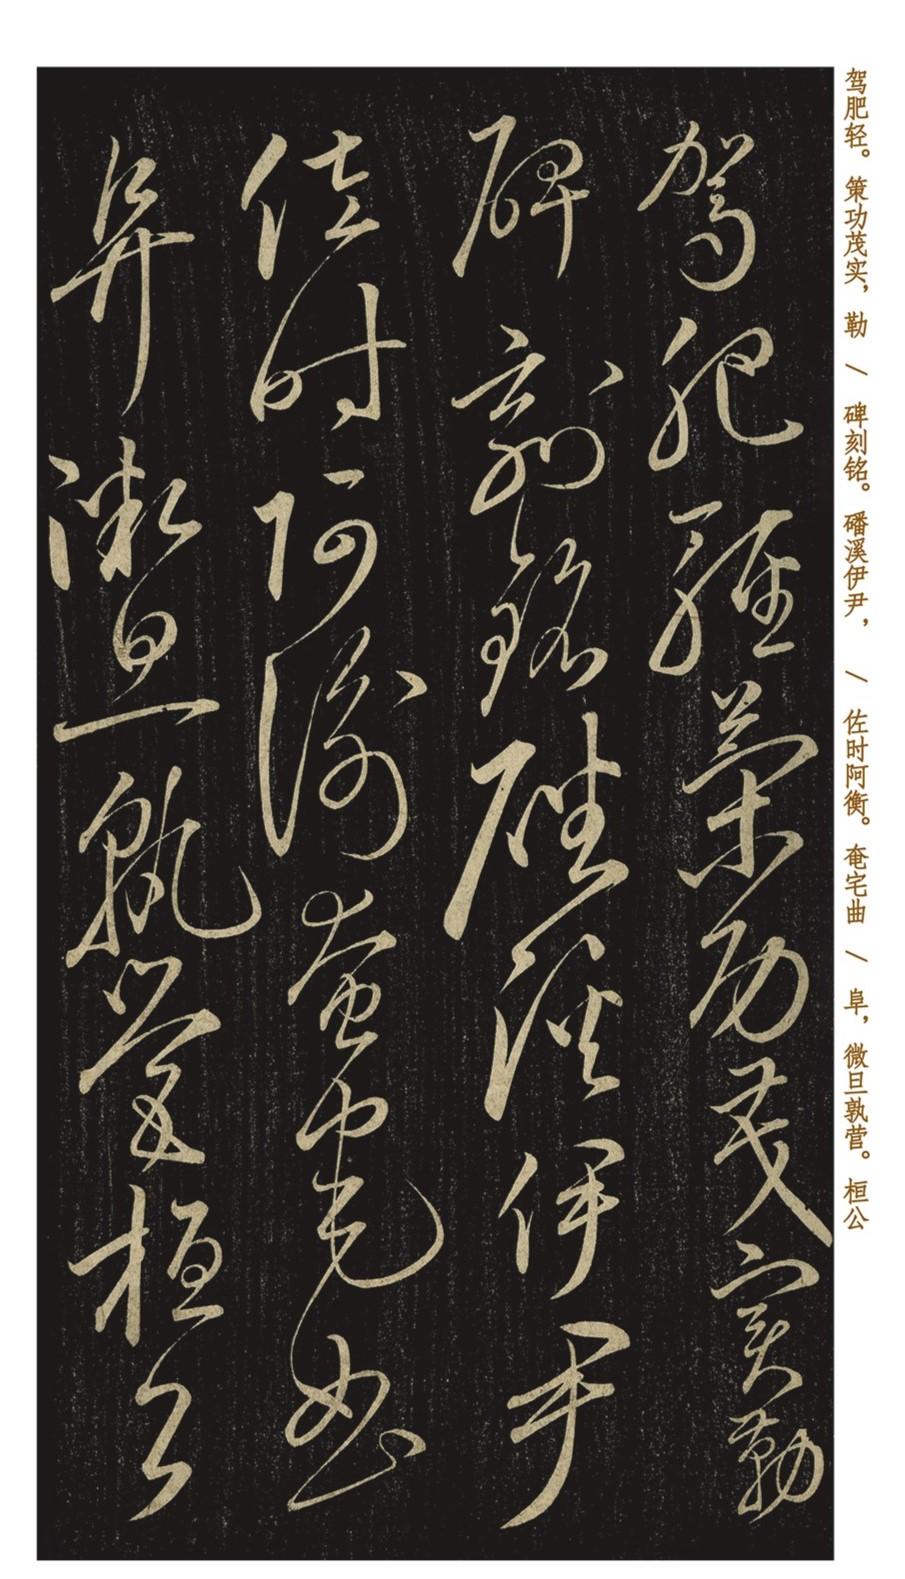 驾肥轻。策功茂实，勒 / 碑刻铭。磻溪伊尹， / 佐时阿衡。奄宅曲 / 阜，微旦孰营。桓公
駕肥輕策功茂實勒
碑刻銘磻溪伊尹
佐時阿衡奄宅曲
阜微旦孰營桓公